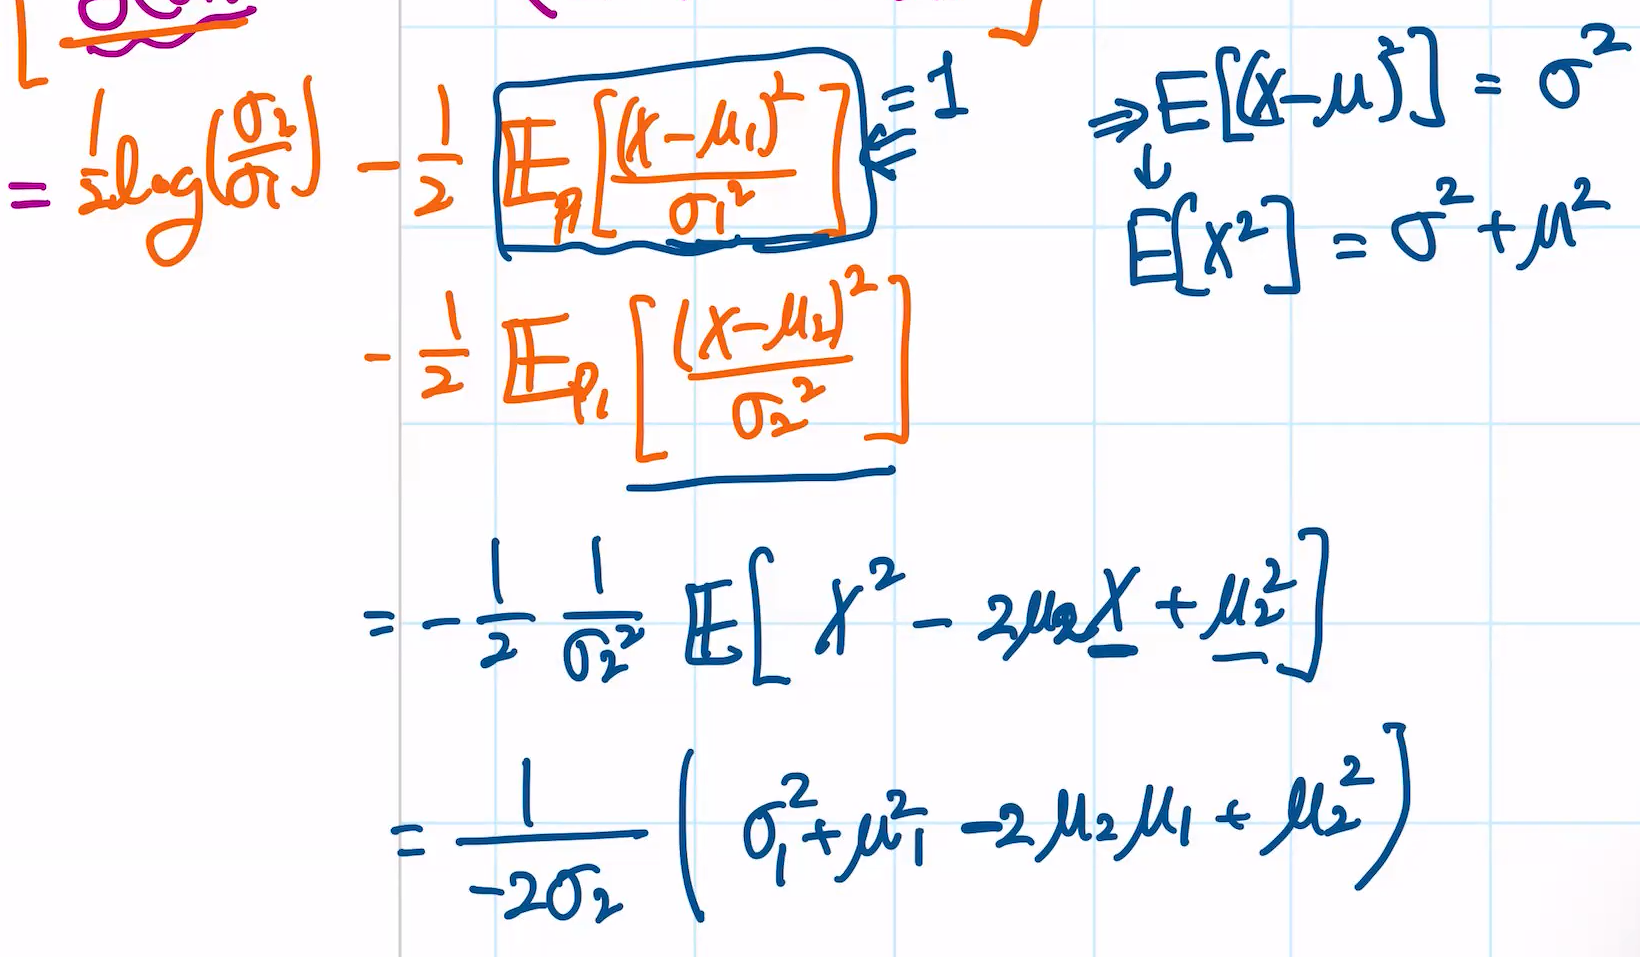 = 1/2 log(σ₂/σ₁) - 1/2 𝔼_P₁[(X-μ₁)²/σ₁²] = 1
⇒ E[(X-μ)²] = σ²
↓
E[X²] = σ² + μ²
- 1/2 𝔼_P₁[(X-μ₂)²/σ₂²]
= - 1/2 1/σ₂² 𝔼[X² - 2μ₂X + μ₂²]
= 1/-2σ₂ (σ₁² + μ₁² - 2μ₂μ₁ + μ₂²)